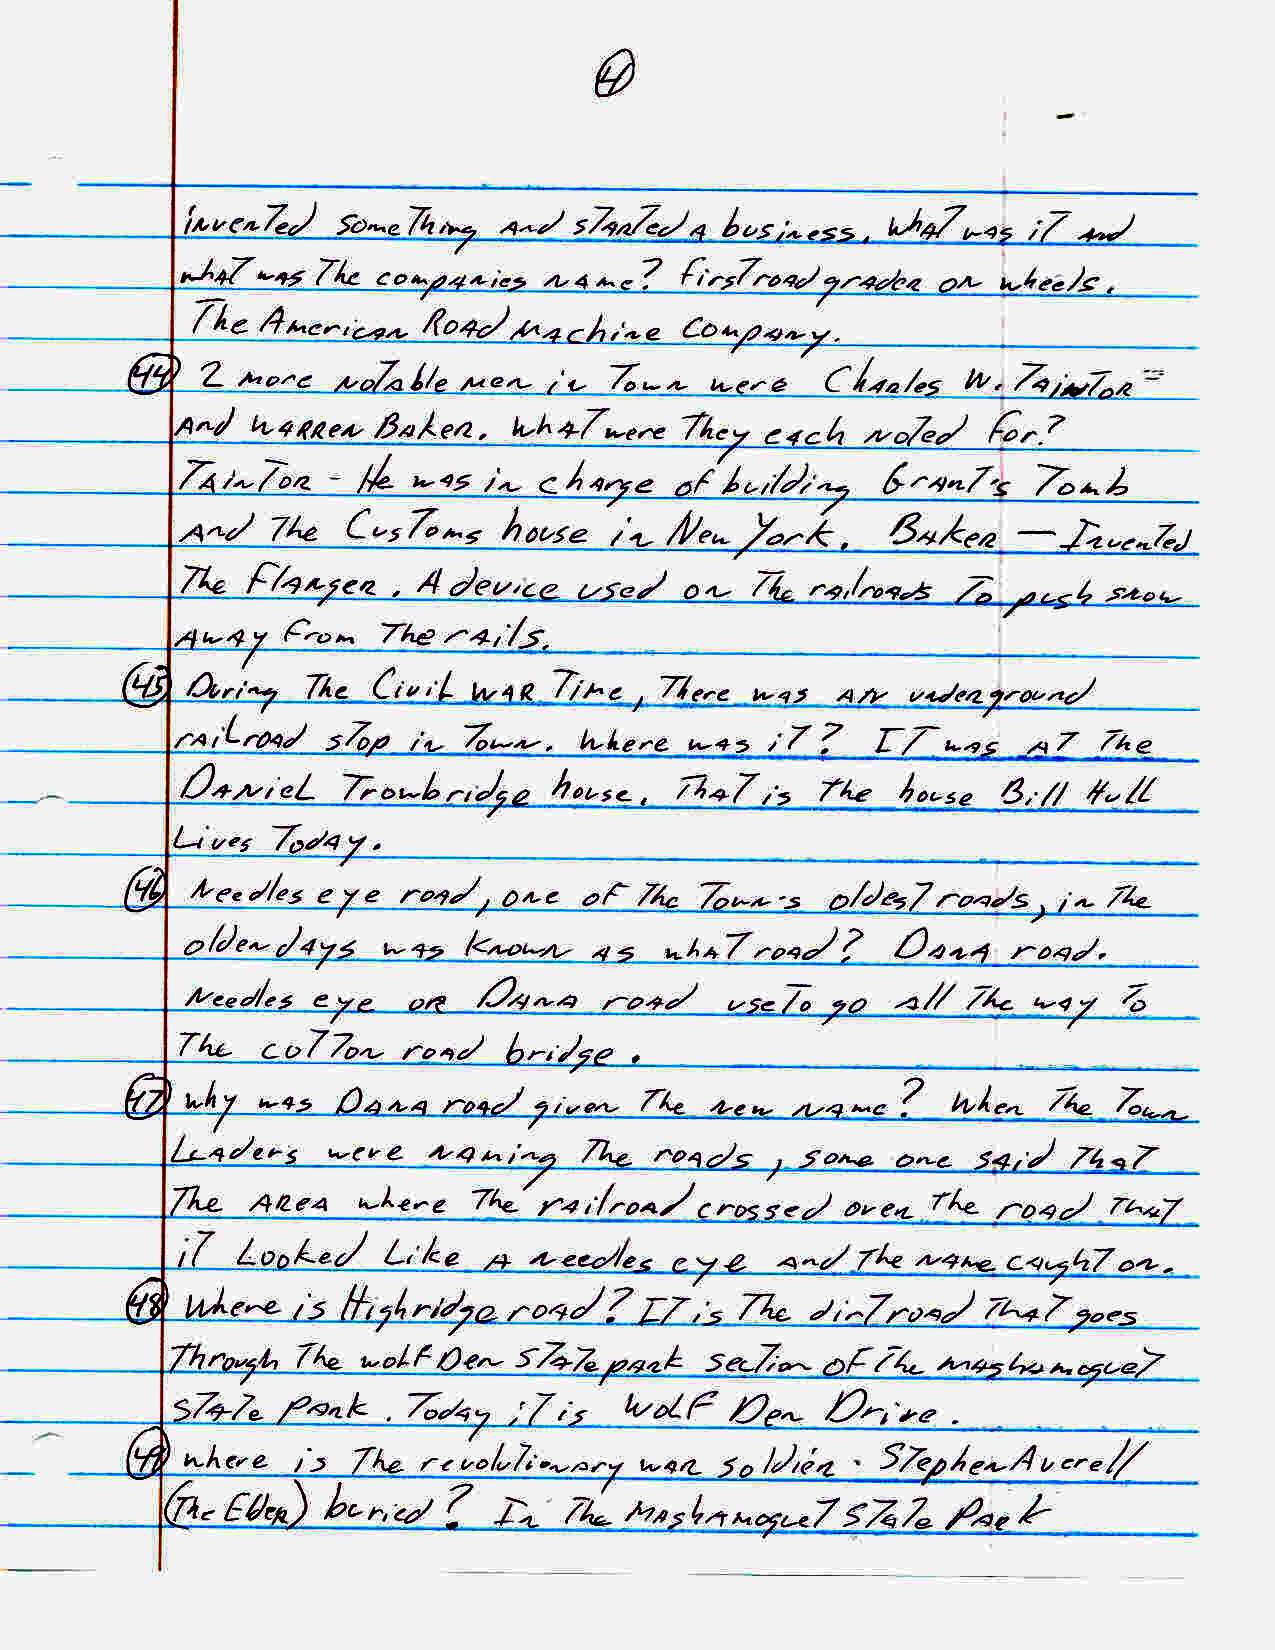 4
invented something and started a business. What was it and
what was the companies name? first road grader on wheels.
The American Road Machine Company.
44 2 more notable men in Town were Charles W. Taintor
and Warren Baker. What were they each noted for?
Taintor - He was in charge of building Grant's Tomb
and the Customs house in New York. Baker — Invented
The Flanger. A device used on the railroads to push snow
away from the rails.
45 During the Civil War Time, there was an underground
railroad stop in Town. Where was it? It was at the
Daniel Trowbridge house. That is the house Bill Hull
Lives Today.
46 Needles eye road, one of the Town's oldest roads, in the
olden days was known as what road? Dana road.
Needles eye or Dana road use to go all the way to
the cotton road bridge.
47 Why was Dana road given the new name? When the Town
Leaders were naming the roads, some one said that
the area where the railroad crossed over the road that
it Looked Like a needles eye and the name caught on.
48 Where is Highridge road? It is the dirt road that goes
through the Wolf Den State park section of the Mashamoquet
State Park. Today it is Wolf Den Drive.
49 where is the revolutionary war soldier. Stephen Averell
(The Elder) buried? In the Mashamoquet State Park